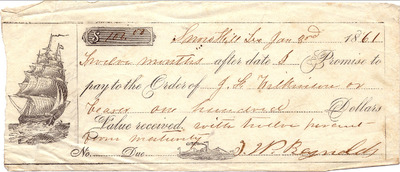 $ 100.00 Jan 2nd 1861
Twelve months after date I Promise to
pay to the Order of J. H. Wilkinson or
bearer one hundred Dollars
Value received with twelve percent
from maturity
No. Due J. W. Reynolds